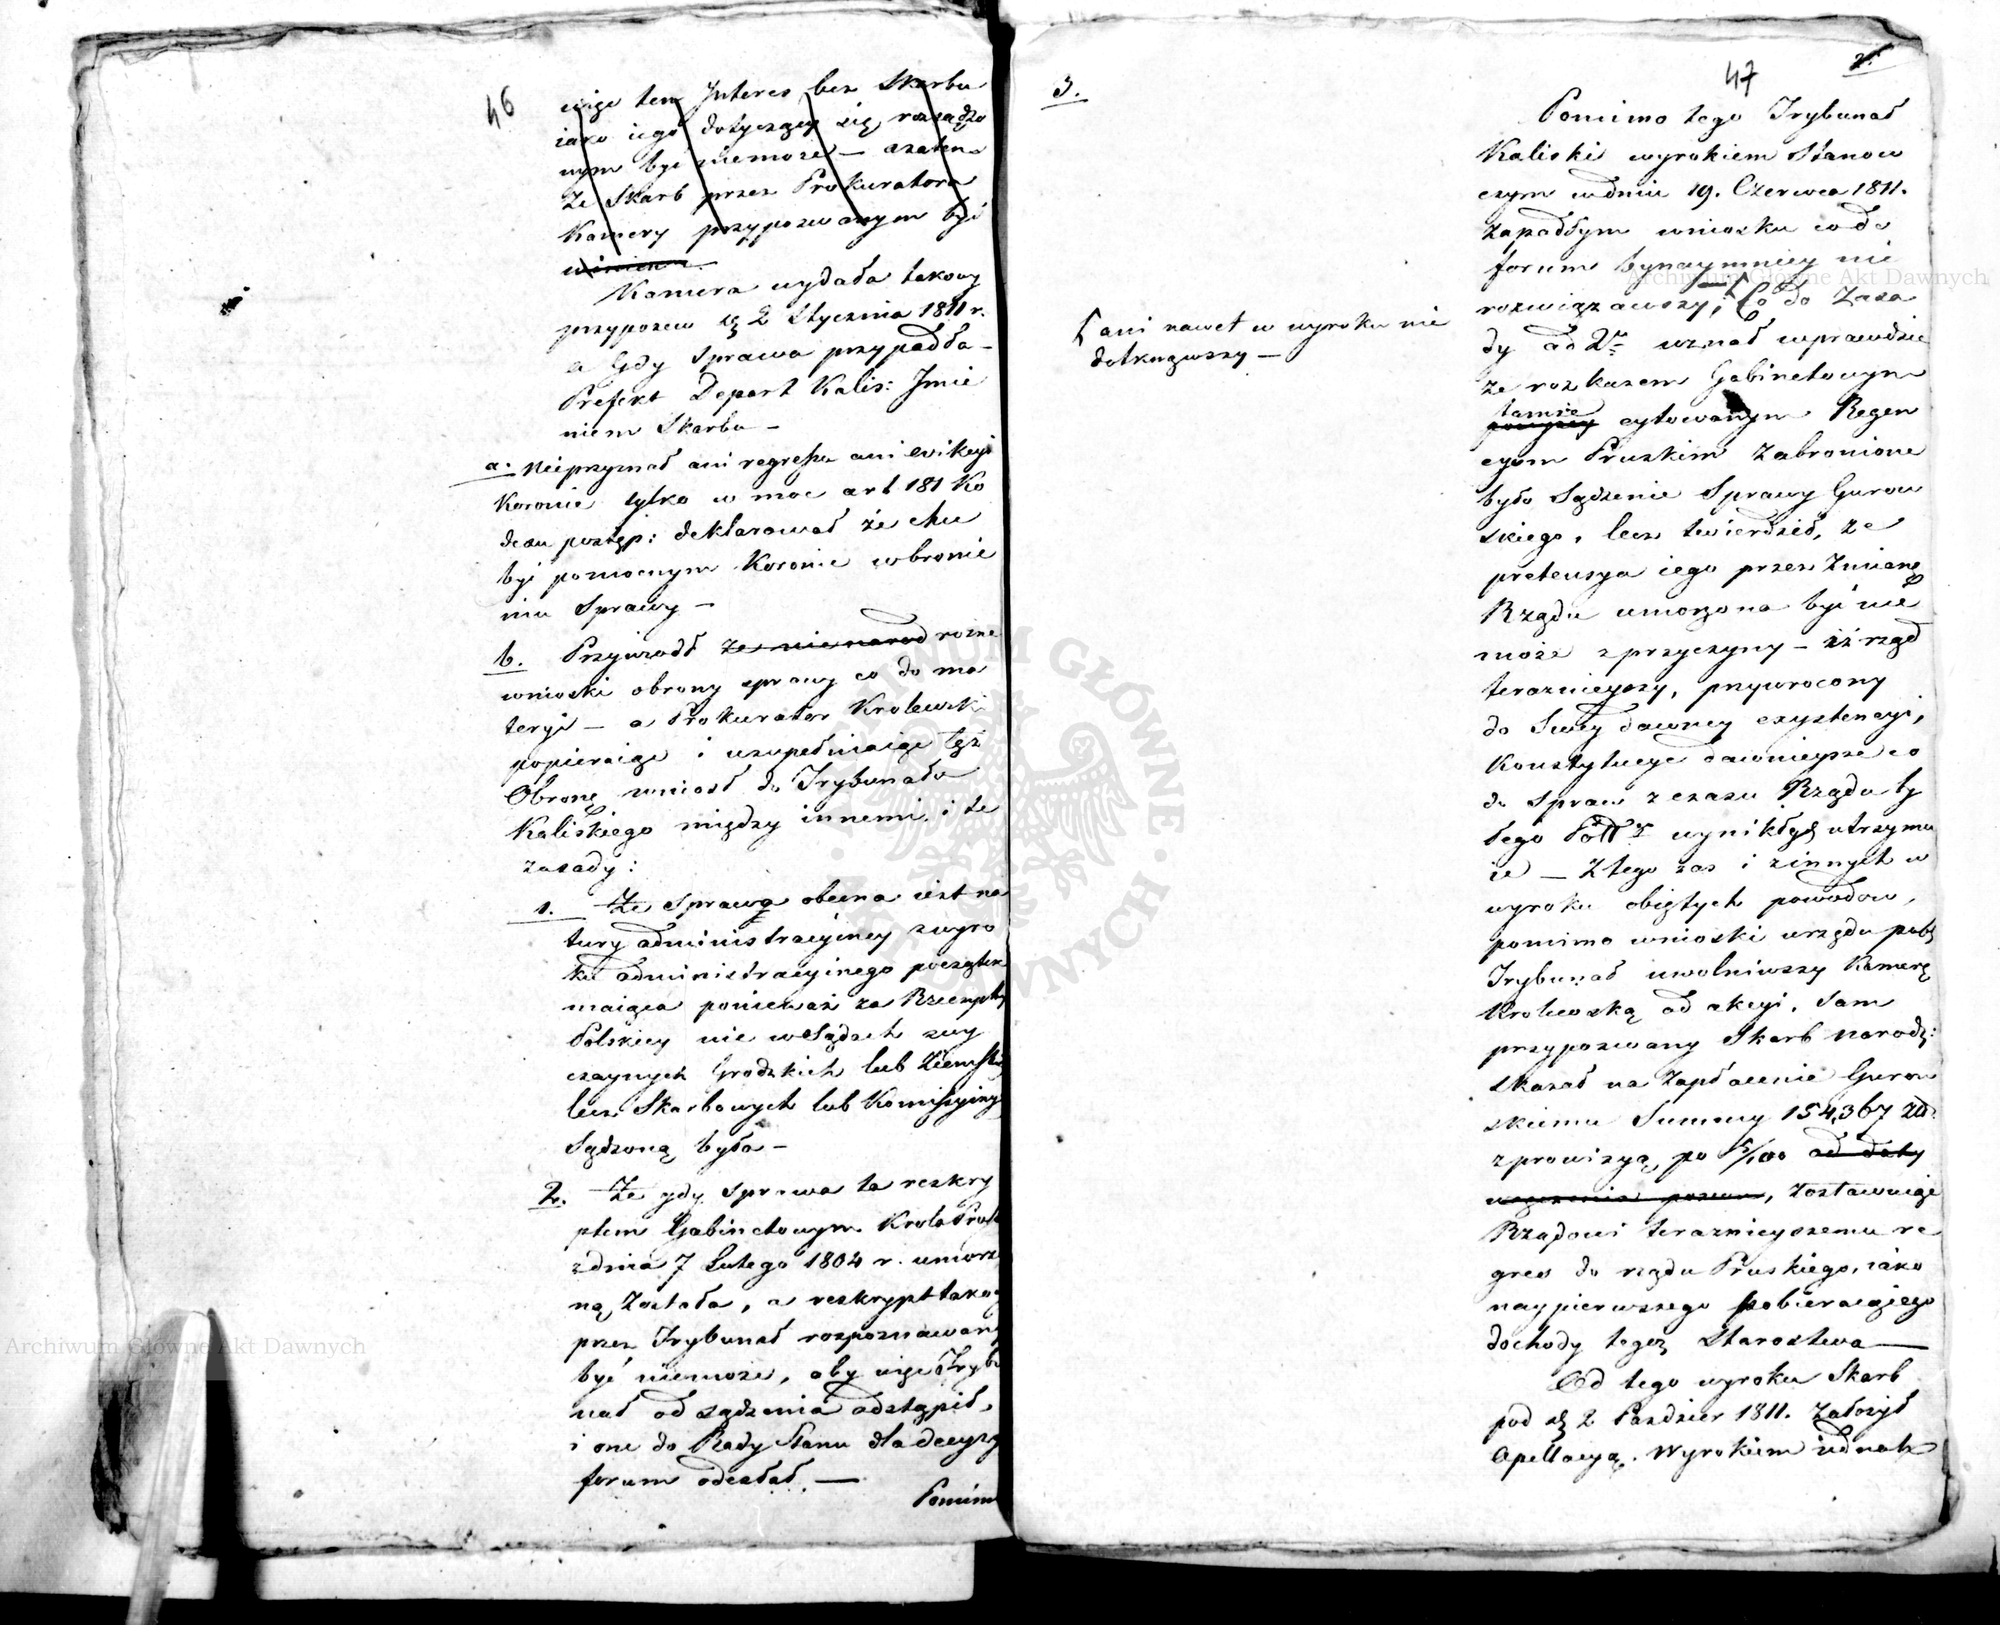 46
więc ten Interes bez Skarbu
iako iego dotyczący się, rozsądzo
nym być niemoże — azatem
że Skarb przez Prokuratora
Kamery przypozwanym być
winien.
Kamera wydała takowy
przypozew d. 2 Stycznia 1811 r.
a Gdy Sprawa przypadła —
Prefekt Depart Kalis: Imie
niem Skarbu —
a. Nieprzyznał ani regressu ani ewikcyi
Koronie tylko w moc art 181 Ko
dexu postęp: deklarował że chce
być pomocnym Koronie w bronie
niu Sprawy —
b. Przywiodł że nie narod rozne
wnioski obrony sprawy co do ma
teryi — a Prokurator Krolewski
popieraiąc i uzupełniaiąc tęż
Obronę wniosł do Trybunału
Kaliskiego między innemi i te
zasady:
1. Że Sprawa obecna iest na
tury administracyiney z wyro
ku administracyinego początek
maiąca ponieważ za Rzeczyplty
Polskiey nie w Sądach zwy
czaynych Grodzkich lub Ziemskich
lecz Skarbowych lub Komissyiny
Sądzoną była —
2. Że gdy Sprawa ta reskry
ptem Gabinetowym Krola Prusk
z dnia 7 Lutego 1804 r. umorzo
ną została, a reskrypt takowy
przez Trybunał rozpoznawany
być niemoże, aby więc Trybu
nał od sądzenia odstąpił,
i one do Rady Stanu dla decyzyi
forum odesłał —
Pomimo
47
2.
3.
Pomimo tego Trybunał
Kaliski wyrokiem Stanow
czym w dniu 19. Czerwca 1811.
zapadłym wniosku co do
forum bynaymniey nie
rozwiązawszy, Co do Zasa
ani nawet w wyroku nie
dotknąwszy —
dy ad 2m wznał wprawdzie
że rozkazem Gabinetowym
tamże
powyżey cytowanym Regen
cyom Pruskim Zabronione
było Sądzenie Sprawy Gurow
skiego, lecz twierdził, że
pretensya iego przez Zmianę
Rządu umorzona być nie
może z przyczyny — iż rząd
teraznieyszy, przywrocony
do Swey dawney exystencyi,
Konstytucye dawnieysze co
do Spraw z czasu Rządu by
łego Pol. wynikłych utrzymu
ie — Z tego zas i z innych w
wyroku obiętych powodow,
pomimo wnioski urzędu publ
Trybunał uwolniwszy Kamerę
Krolewską od akcyi, Sam
przypozwany Skarb Narod:
skazał na Zapłacenie Gurow
skiemu Summy 154,367 Zł.
z prowizyą po 5/100 od daty
wręczenia pozwu, zostawuiąc
Rządowi teraznieyszemu re
gres do rządu Pruskiego, iako
naypierwszego pobieraiącego
dochody tegoż Starostwa —
Od tego wyroku Skarb
pod d. 2 Pazdzier 1811. Założył
Apellacyą. Wyrokiem iednak
Archiwum Główne Akt Dawnych
Archiwum Główne Akt Dawnych
ARCHIWUM GŁÓWNE AKT DAWNYCH